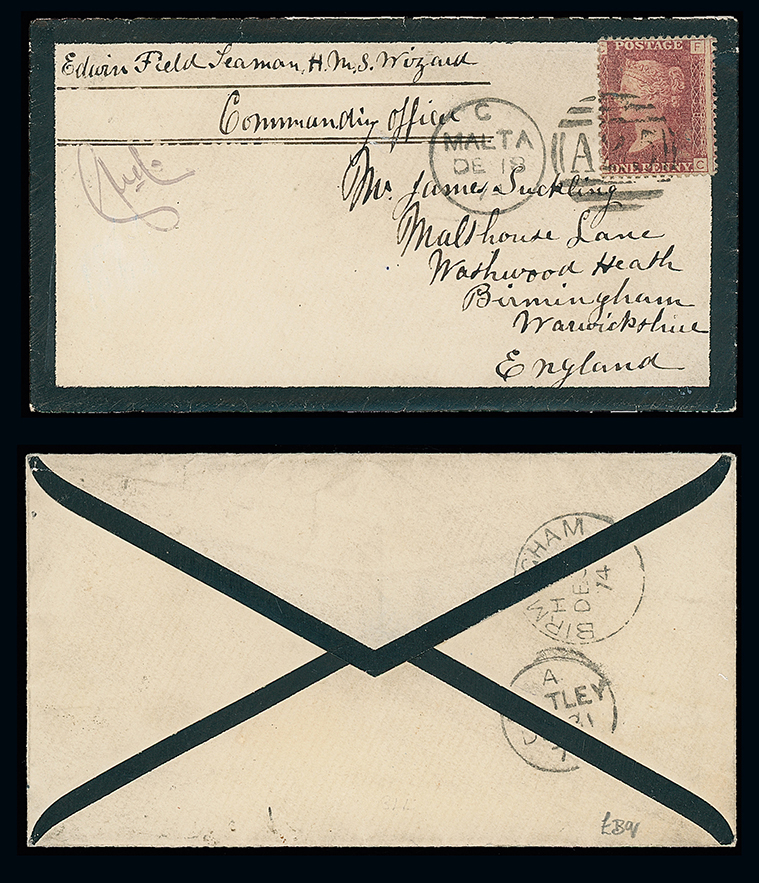 Edwin Field Seaman, H.M.S. Wizard
Commanding Officer
C
MALTA
DE 18
7
A25
POSTAGE
F
ONE PENNY
C
Mr. James Suckling
Malthouse Lane
Washwood Heath
Birmingham
Warwickshire
England
BIRMINGHAM
H
DE
74
A
TLEY
31
7